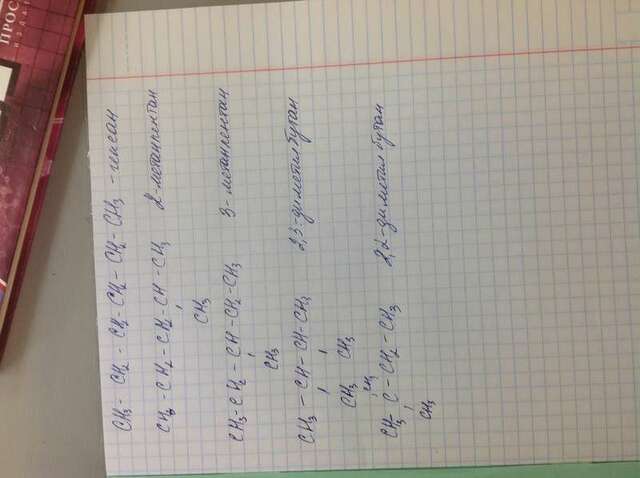 CH3 - CH2 - CH2 - CH2 - CH2 - CH3 - гексан
CH3 - CH2 - CH2 - CH - CH3 2-метапентан
CH3
CH3 - CH2 - CH - CH2 - CH3 3-метапентан
CH3
CH3 - CH - CH - CH3 2,3-диметил бутан
CH3 CH3
CH3
CH3 - C - CH2 - CH3 2,2-диметил бутан
CH3
ПРОС